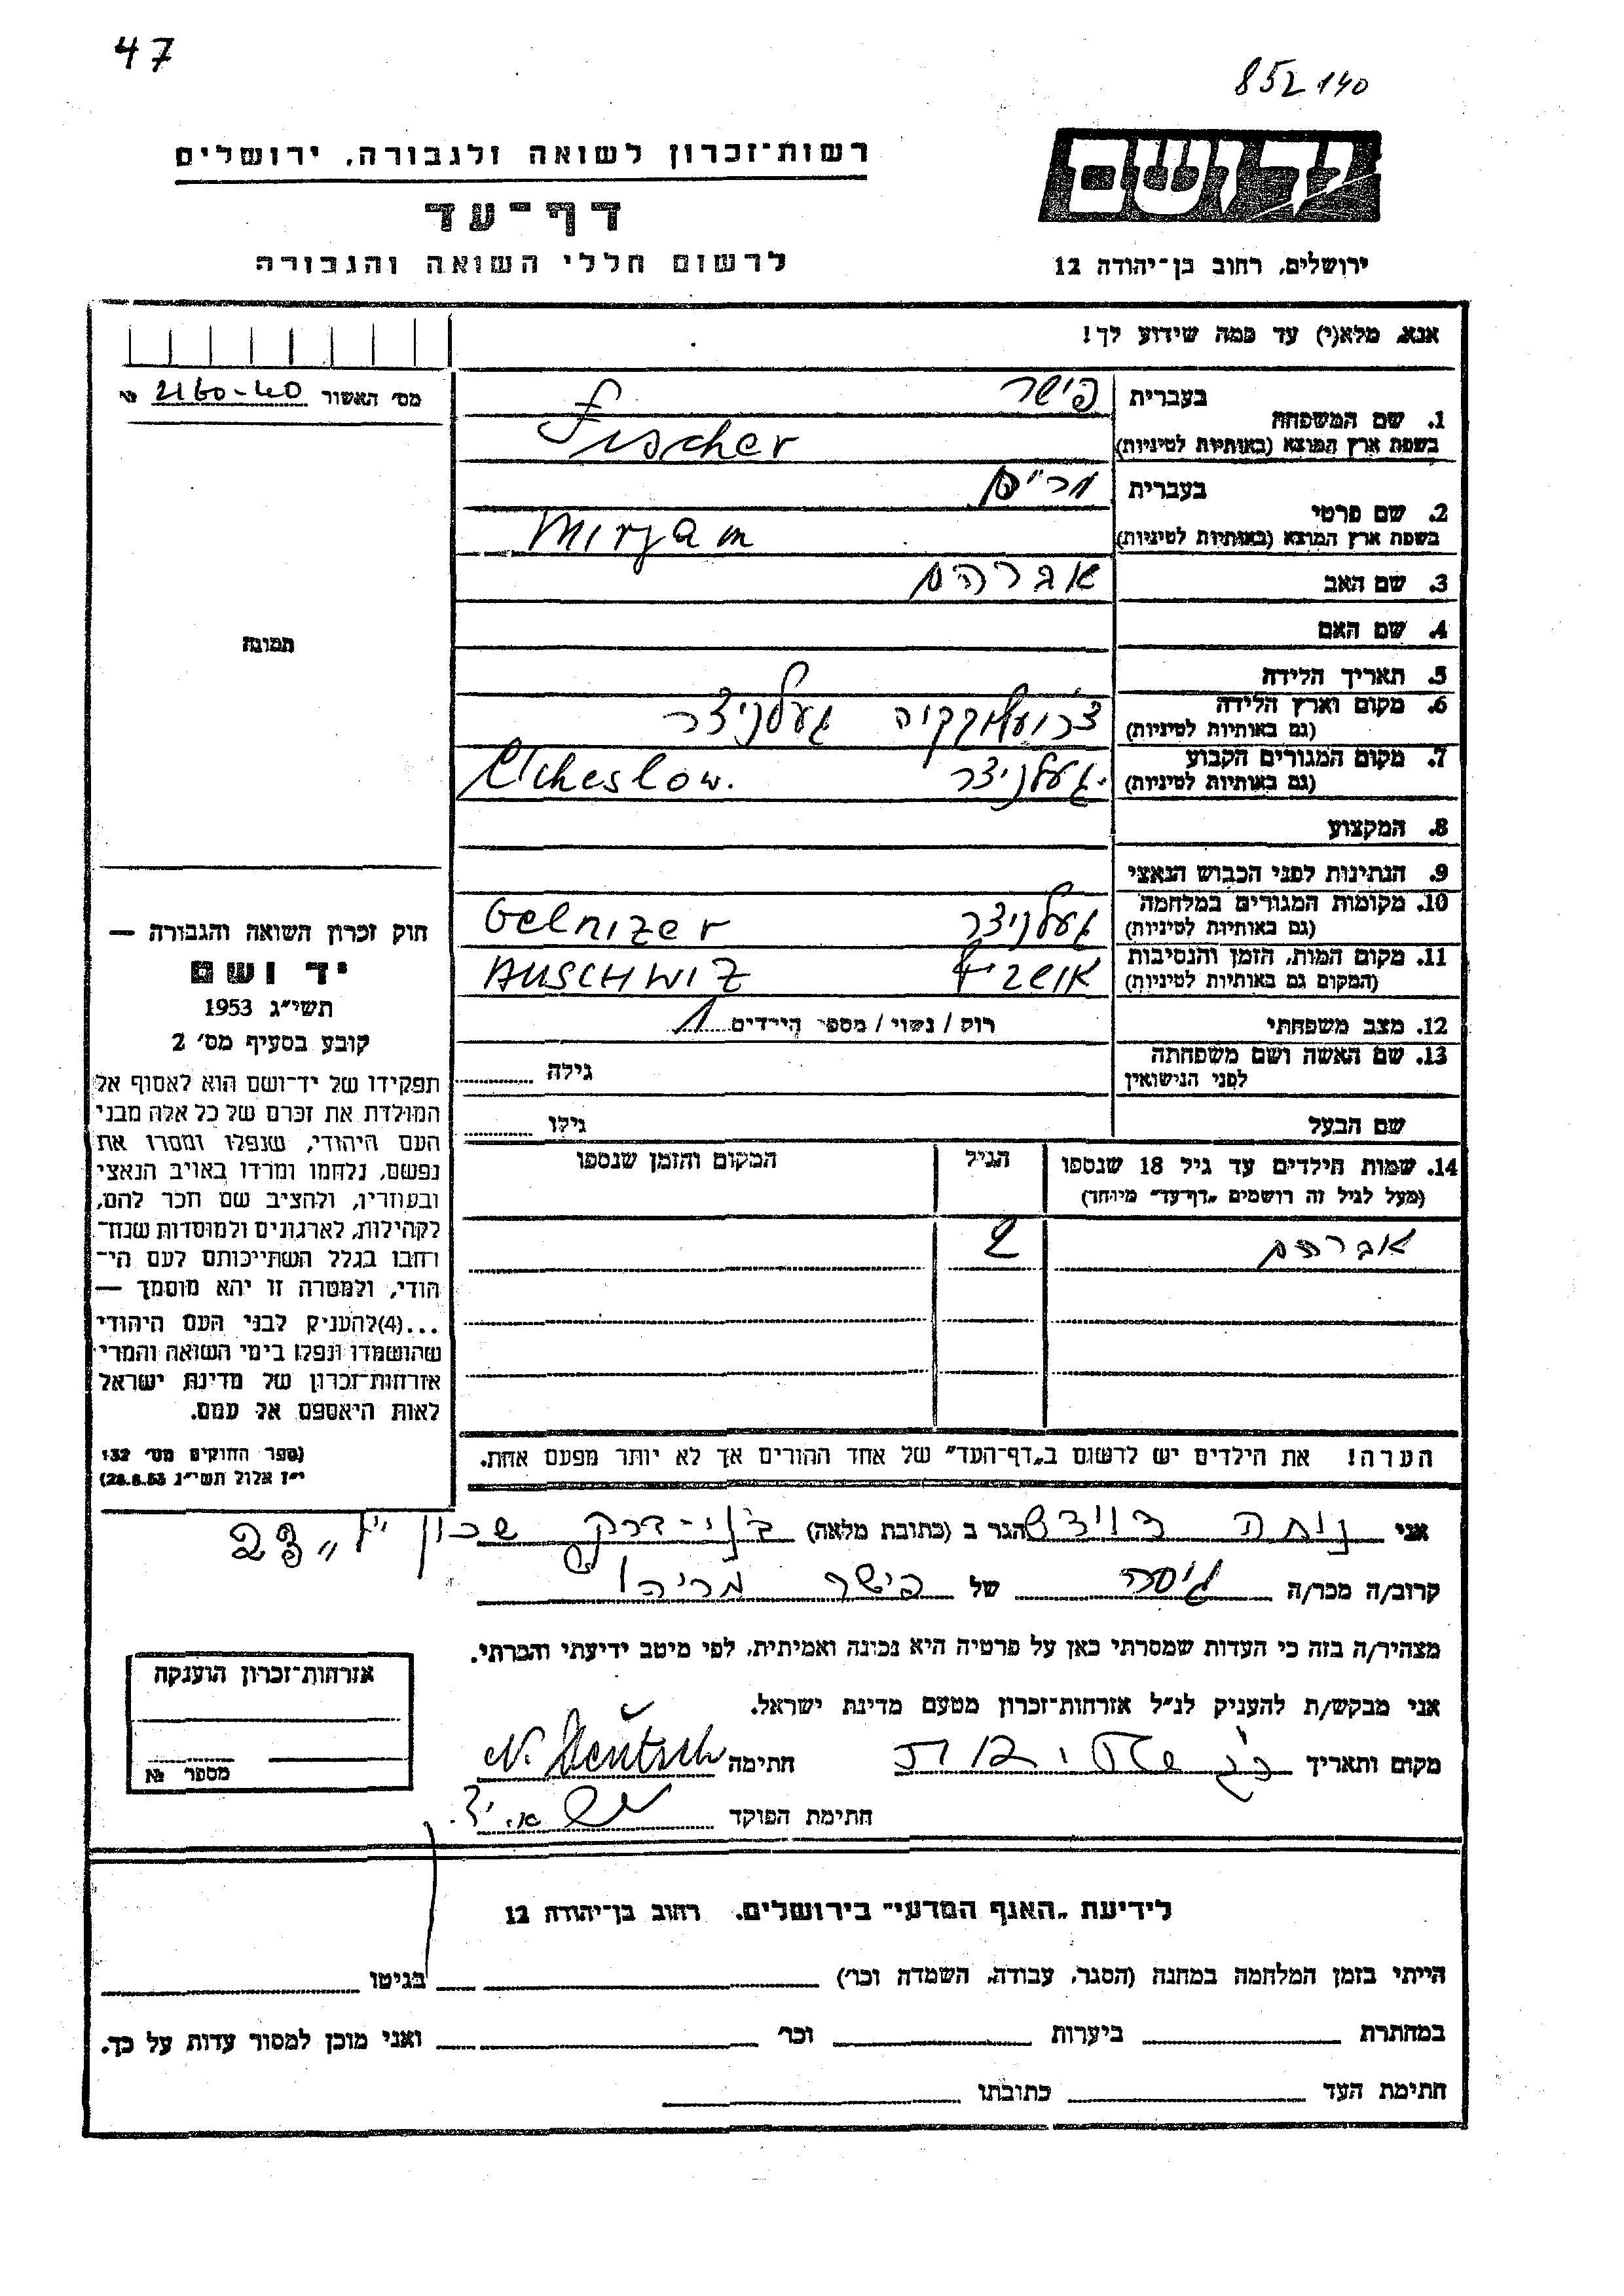 47
852140
רשות־זכרון לשואה ולגבורה, ירושלים
דף־עד
לרשום חללי השואה והגבורה
ידושם
ירושלים, רחוב בן־יהודה 12
אנא, מלא(י) עד כמה שידוע לך!
מס׳ האשור 2160-40 №
בעברית פישר
1. שם המשפחה
בשפת ארץ המוצא (באותיות לטיניות) Fischer
בעברית מרים
2. שם פרטי
בשפת ארץ המוצא (באותיות לטיניות) Mirjam
3. שם האב אברהם
4. שם האם
5. תאריך הלידה
6. מקום וארץ הלידה
(גם באותיות לטיניות) געלניצר
7. מקום המגורים הקבוע
(גם באותיות לטיניות) געלניצר
8. המקצוע
9. הנתינות לפני הכבוש הנאצי
10. מקומות המגורים במלחמה
(גם באותיות לטיניות) געלניצר Gelnizer
11. מקום המות, הזמן והנסיבות
(המקום גם באותיות לטיניות) אושביץ AUSCHWIZ
12. מצב משפחתי רוק / נשוי / מספר הילדים 1
13. שם האשה ושם משפחתה
לפני הנישואין גילה
שם הבעל גילו
14. שמות הילדים עד גיל 18 שנספו הגיל המקום והזמן שנספו
(מעל לגיל זה רושמים „דף־עד״ מיוחד)
אברהם 2
הערה! את הילדים יש לרשום ב„דף־העד״ של אחד ההורים אך לא יותר מפעם אחת.
תמונה
חוק זכרון השואה והגבורה —
יד ושם
תשי״ג 1953
קובע בסעיף מס׳ 2
תפקידו של יד־ושם הוא לאסוף אל
המולדת את זכרם של כל אלה מבני
העם היהודי, שנפלו ומסרו את
נפשם, נלחמו ומרדו באויב הנאצי
ובעוזריו, ולהציב שם וזכר להם,
לקהילות, לארגונים ולמוסדות שנח־
רחבו בגלל השתייכותם לעם הי־
הודי, ולמטרה זו יהא מוסמך —
...(4)להעניק לבני העם היהודי
שהושמדו ונפלו בימי השואה והמרי
אזרחות־זכרון של מדינת ישראל
לאות היאספם אל עמם.
(ספר החוקים מס׳ 132
י״ז אלול תשי״ג 28.8.53)
אני נוחה דויטש הגר ב (כתובת מלאה) בני-ברק שכון
קרוב/ה מכר/ה גיסה של פישר מרים
מצהיר/ה בזה כי העדות שמסרתי כאן על פרטיה היא נכונה ואמיתית, לפי מיטב ידיעתי והכרתי.
אני מבקש/ת להעניק לנ״ל אזרחות־זכרון מטעם מדינת ישראל.
מקום ותאריך חתימה N. Deutsch
חתימת הפוקד
אזרחות־זכרון הוענקה
מספר №
לידיעת „האגף המדעי״ בירושלים. רחוב בן־יהודה 12
הייתי בזמן המלחמה במחנה (הסגר, עבודה, השמדה וכר׳) בגיטו
במחתרת ביערות וכר׳ ואני מוכן למסור עדות על כך.
חתימת העד כתובתו